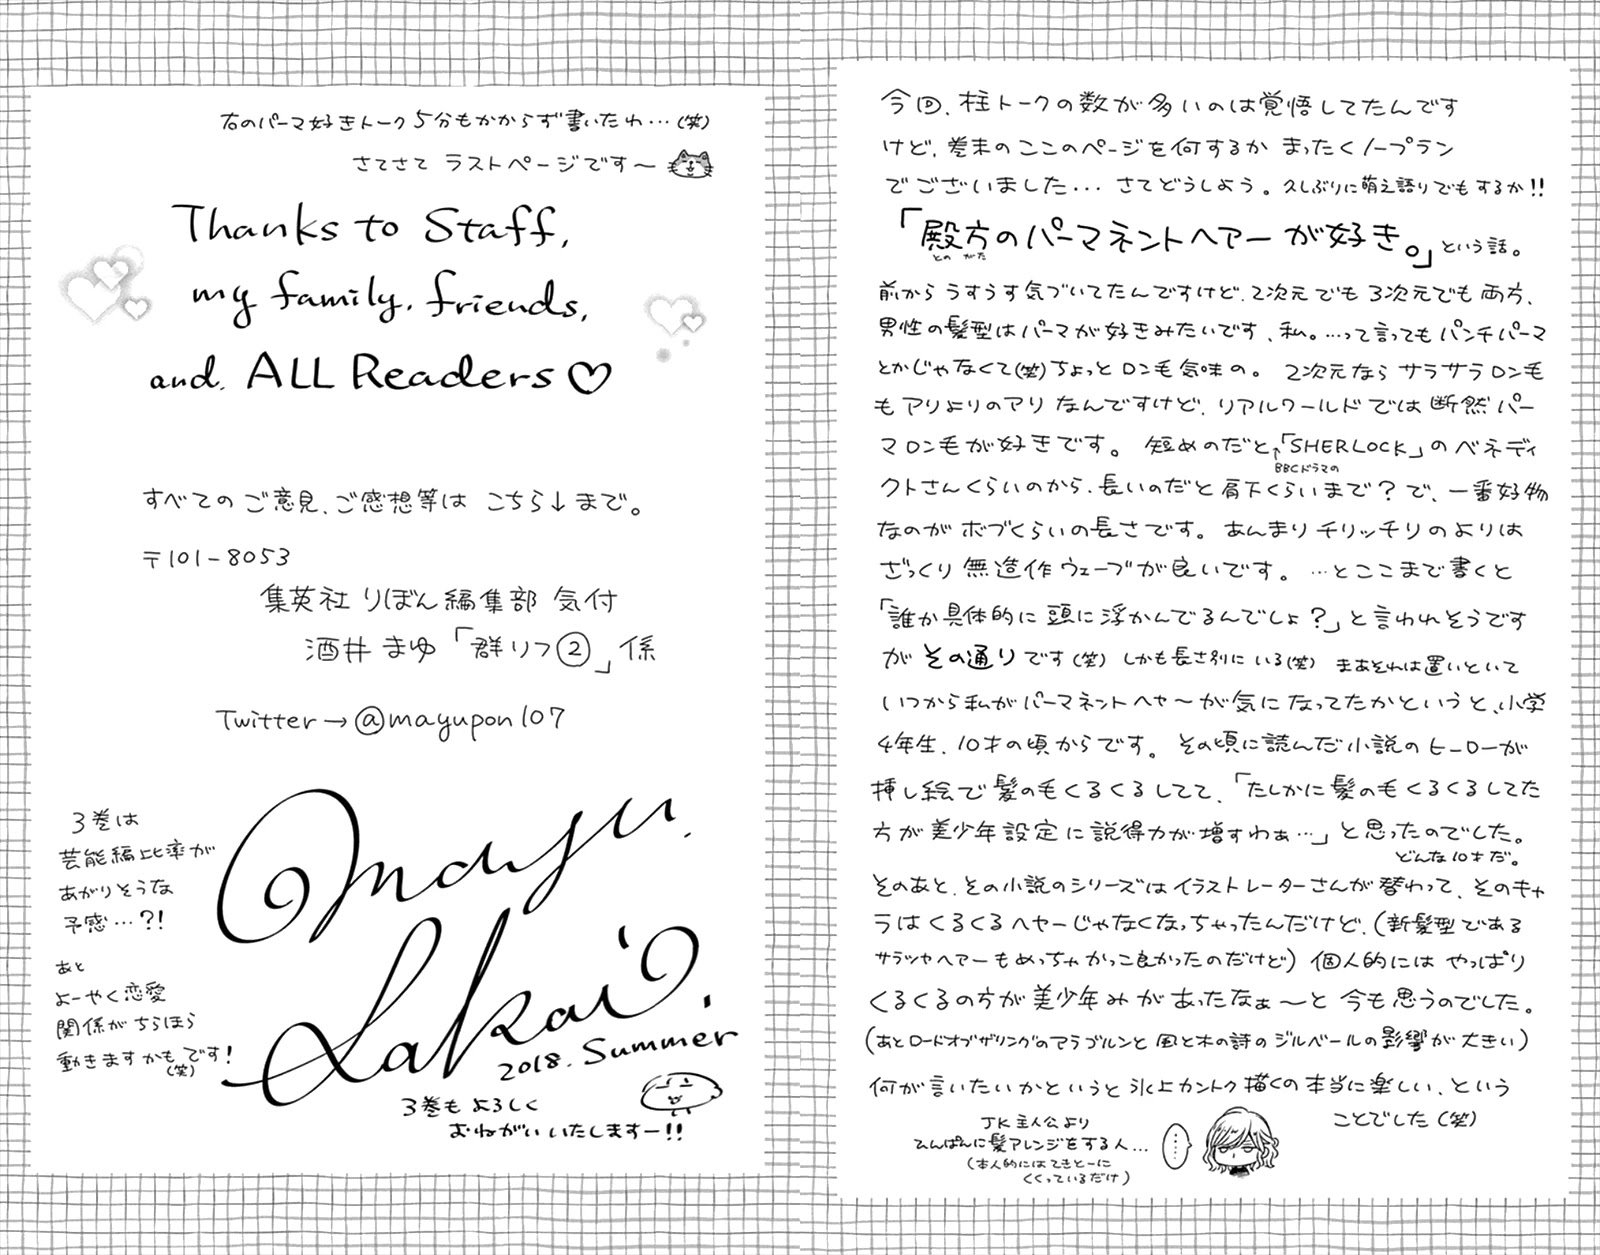 今回、柱トークの数が多いのは覚悟してたんです
けど、巻末のここのページを何するか まったくノープラン
でございました… さてどうしよう。久しぶりに萌え語りでもするか!!
「殿方のパーマネントヘアーが好き。」という話。
とのがた
前からうすうす気づいてたんですけど、2次元でも3次元でも両方、
男性の髪型はパーマが好きみたいです、私。…って言ってもパンチパーマ
とかじゃなくて(笑)ちょっとロン毛気味の。2次元ならサラサラロン毛
もアリよりのアリなんですけど、リアルワールドでは断然パー
マロン毛が好きです。短めのだと「SHERLOCK」のベネディ
↑BBCドラマの
クトさんくらいのから、長いのだと肩下くらいまで?で、一番好物
なのがボブくらいの長さです。あんまりチリッチリのよりは
ざっくり無造作ウェーブが良いです。…とここまで書くと
「誰か具体的に頭に浮かんでるんでしょ?」と言われそうです
がその通りです(笑) しかも長さ別にいる(笑) まあそれは置いといて
いつから私がパーマネントヘヤ〜が気になってたかというと、小学
4年生、10才の頃からです。その頃に読んだ小説のヒーローが
挿し絵で髪の毛くるくるしてて、「たしかに髪の毛くるくるしてた
方が美少年設定に説得力が増すわぁ…」と思ったのでした。
どんな10才だ。
そのあと、その小説のシリーズはイラストレーターさんが替わって、そのキャ
ラはくるくるヘヤーじゃなくなっちゃったんだけど、(新髪型である
サラツヤヘアーもめっちゃかっこ良かったのだけど) 個人的にはやっぱり
くるくるの方が美少年みがあったなぁ〜と今も思うのでした。
(あとロードオブザリングのアラゴルンと風と木の詩のジルベールの影響が大きい)
何が言いたいかというと氷上カントク描くの本当に楽しい、という
ことでした(笑)
JK主人公より
ひんぱんに髪アレンジをする人…
(本人的にはてきとーに
くくっているだけ)
……
右のパーマ好きトーク5分もかからず書いたわ…(笑)
さてさて ラストページです〜
Thanks to Staff,
my family, friends,
and, ALL Readers♡
すべてのご意見、ご感想等は こちら↓まで。
〒101-8053
集英社 りぼん編集部 気付
酒井まゆ「群リフ②」係
Twitter→@mayupon107
3巻は
芸能編比率が
あがりそうな
予感…?!
あと
よーやく恋愛
関係がちらほら
動きますかもです!
(笑)
Mayu.
Sakai.
2018. Summer
3巻もよろしく
おねがいいたしますー!!